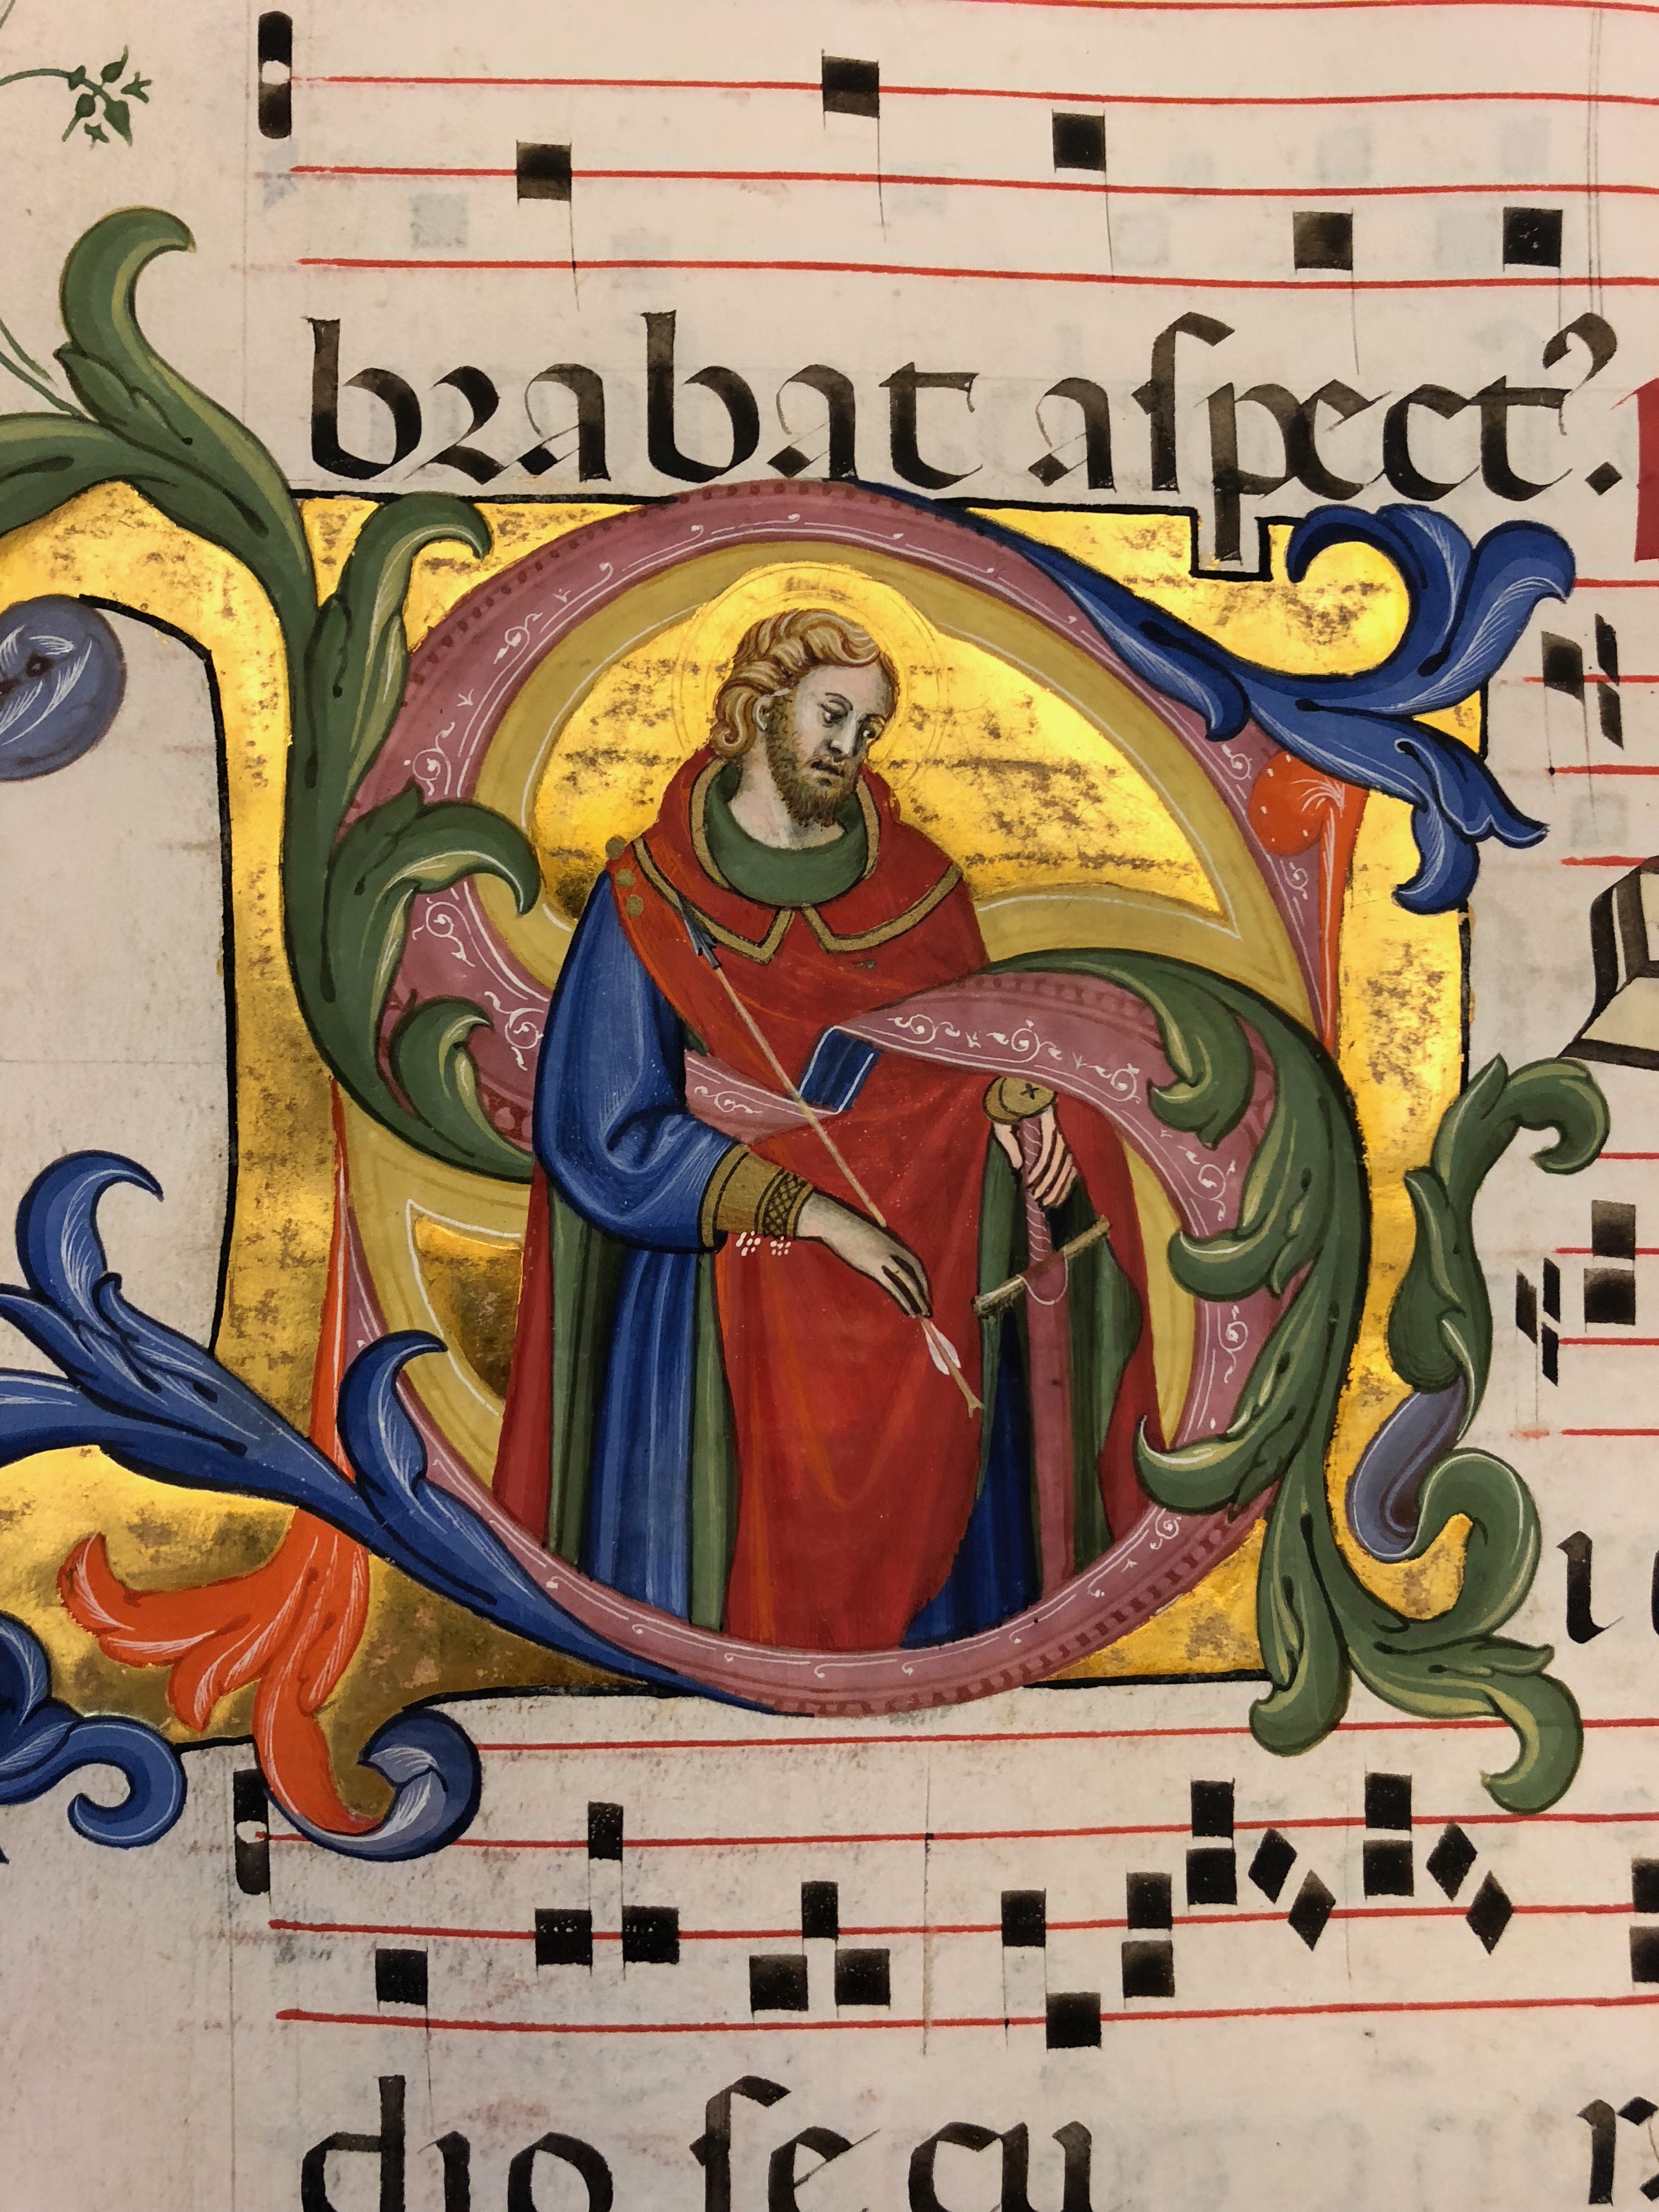 brabat aſpectꝰ.
S
dio ſe cu